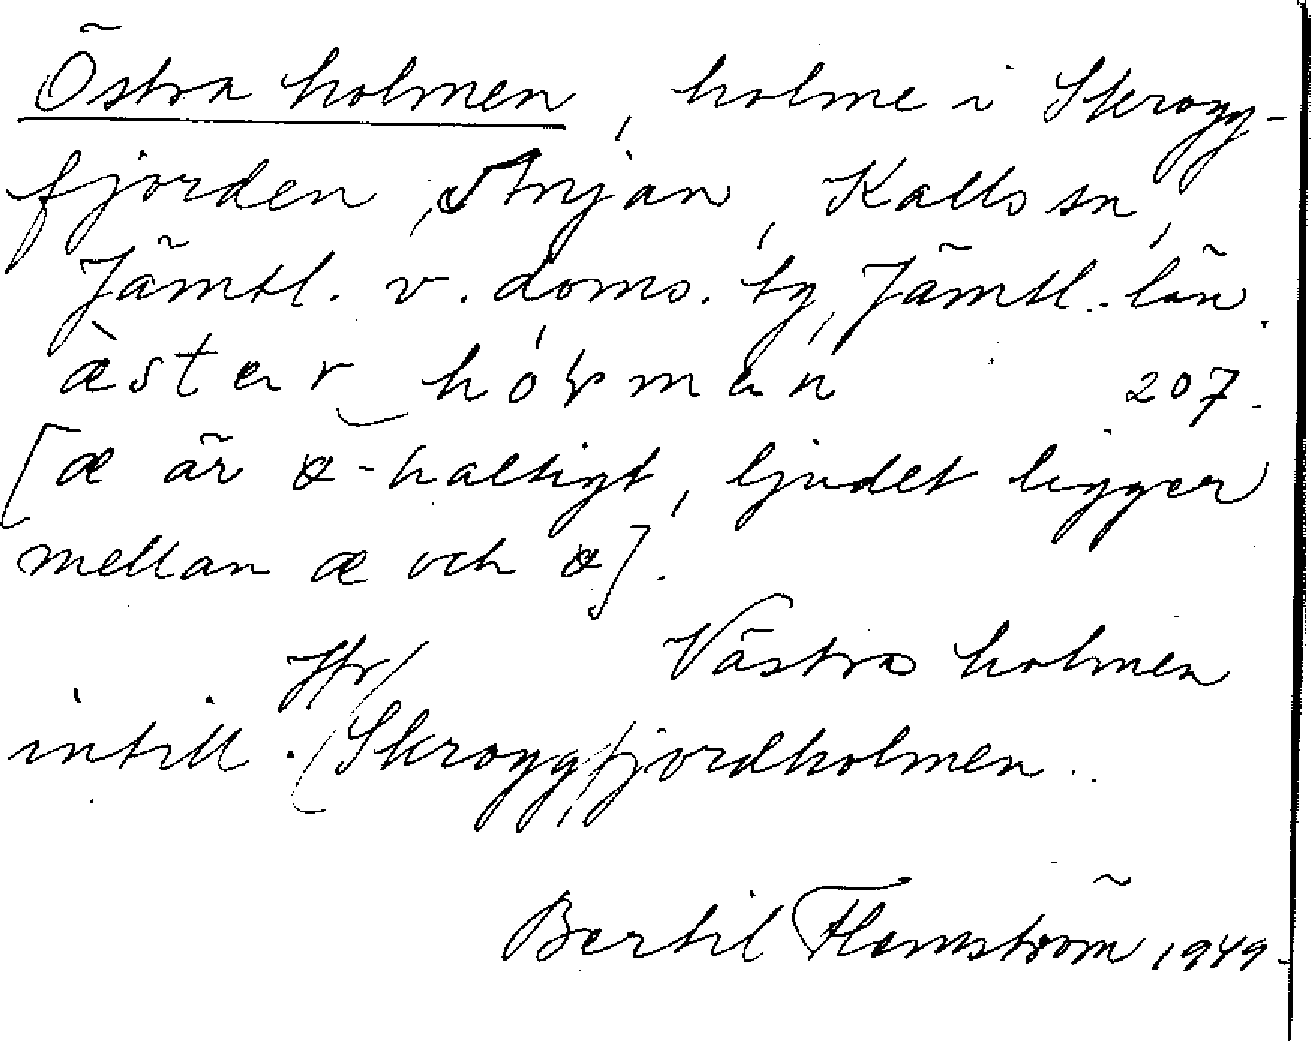 Östra holmen, holme i Skrogg-
fjorden, Anjan, Kalls sn,
Jämtl. v. doms. tg, Jämtl. län.
æster hóɽmen 207.
[æ är a-haltigt, ljudet ligger
mellan æ och a].
Jfr Västra holmen
intill. (Skroggfjordholmen.
Bertil Flemström 1949.